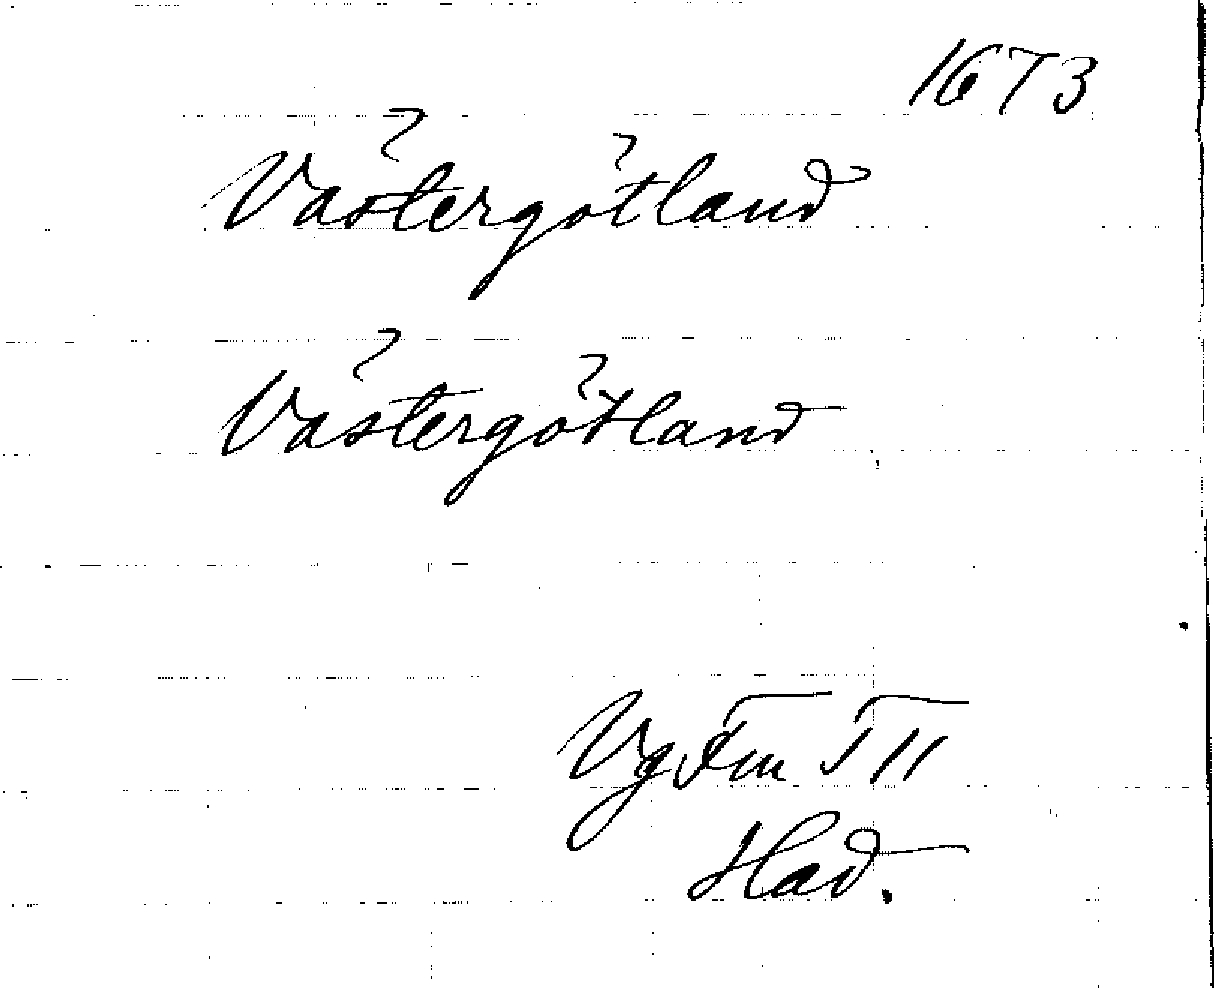 1673
Västergötland
Västergötland
Vg Fm I 11
Had.